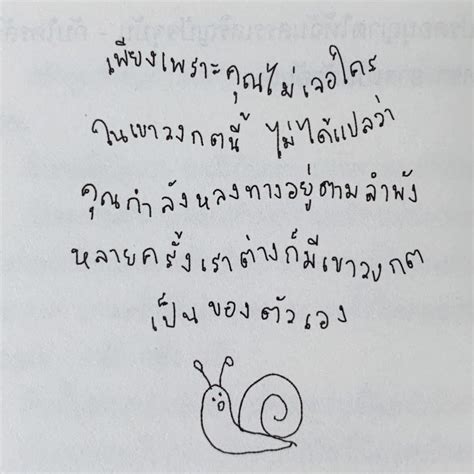 เพียงเพราะคุณไม่เจอใคร
ในเขาวงกตนี้ ไม่ได้แปลว่า
คุณกำลังหลงทางอยู่ตามลำพัง
หลายครั้งเราต่างก็มีเขาวงกต
เป็นของตัวเอง